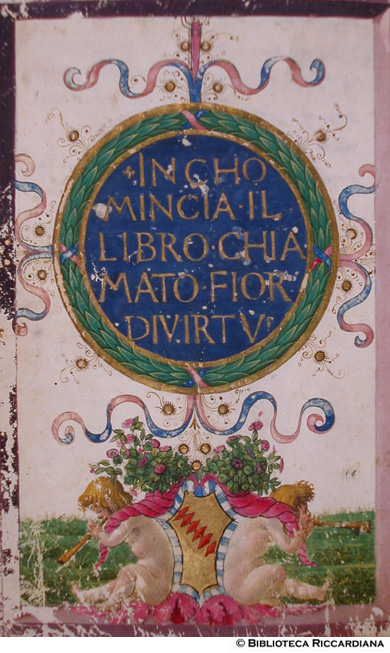 INCHO
MINCIA·IL
LIBRO·CHIA
MATO·FIOR
DIVIRTV
© BIBLIOTECA RICCARDIANA